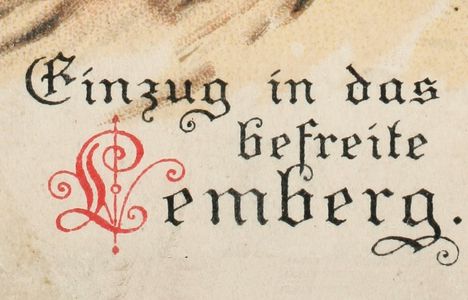 Einzug in das
befreite
Lemberg.